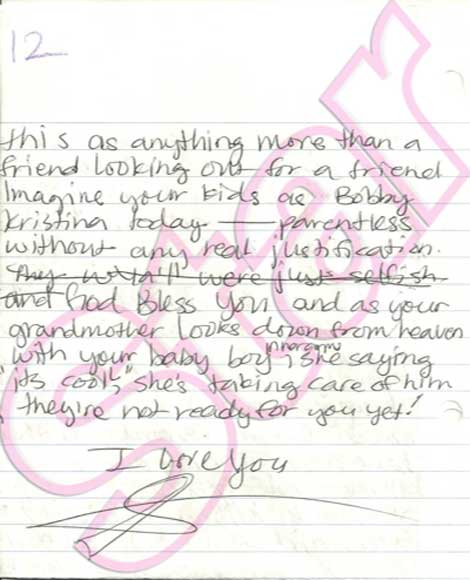 12
this as anything more than a
friend looking out for a friend
Imagine your kids as Bobby
Kristina today — parentless
without any real justification.
were just selfish
and God Bless You and as your
grandmother looks down from heaven
with your baby boy is she saying
"its cool," she's taking care of him
they're not ready for you yet!
I Love You
Star